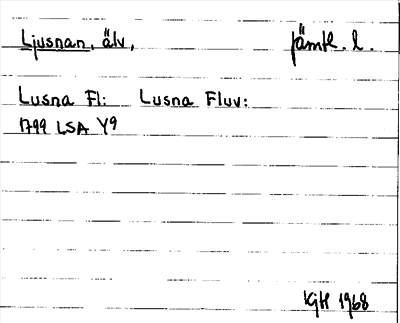 Ljusnan, älv, jämtl. l.
Lusna Fl: Lusna Fluv:
1799 LSA Y9
KgH 1968